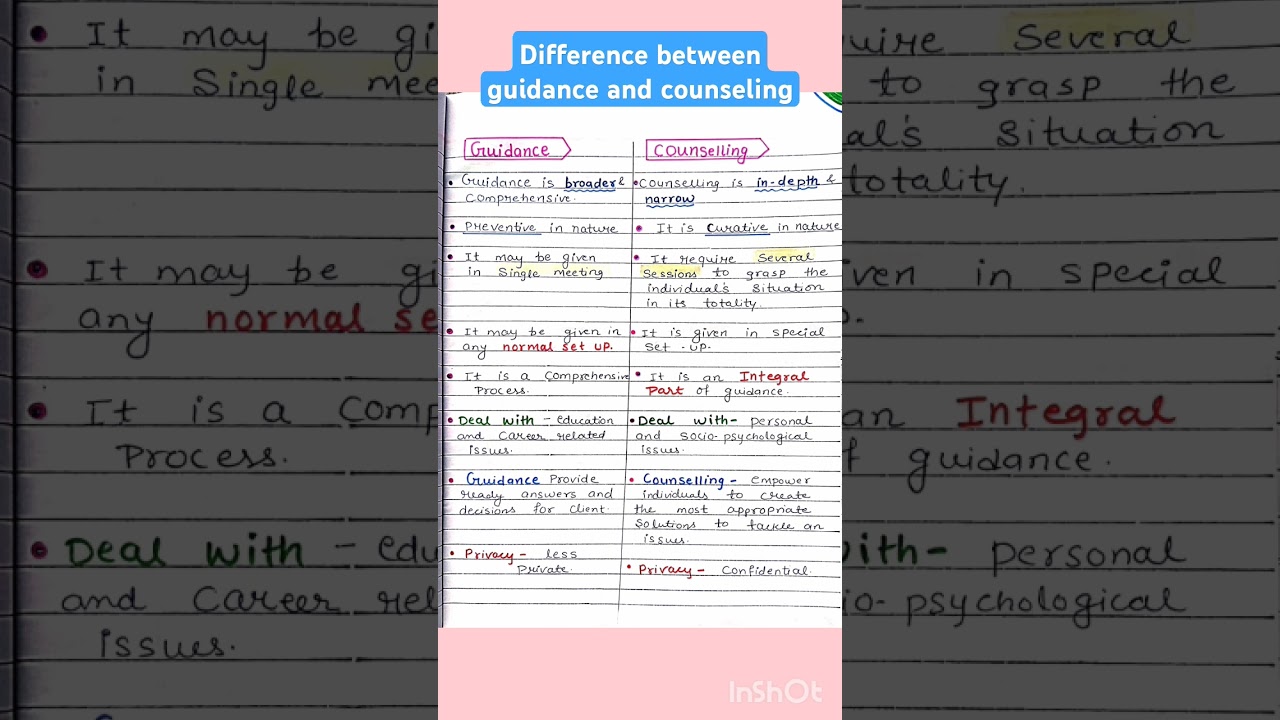 Difference between
guidance and counseling
Guidance
• Guidance is broader &
comprehensive.
• Preventive in nature
• It may be given
in Single meeting
• It may be given in
any normal set up.
• It is a comprehensive
Process.
• Deal with - education
and career related
issues.
• Guidance Provide
ready answers and
decisions for client.
• Privacy - less
Private.
Counselling
• Counselling is in-depth &
narrow
• It is curative in nature
• It require Several
Sessions to grasp the
individual's situation
in its totality.
• It is given in special
set-up.
• It is an Integral
Part of guidance.
• Deal with - personal
and socio-psychological
issues.
• Counselling - empower
individuals to create
the most appropriate
solutions to tackle an
issues.
• Privacy - Confidential.
• It may be gi
in Single mee
• It may be gi
any normal se
• It is a comp
Process.
• Deal with - edu
and career rel
issues.
uire Several
to grasp the
al's situation
totality.
ven in special
p.
an Integral
f guidance.
ith - personal
io-psychological
issues.
InShOt